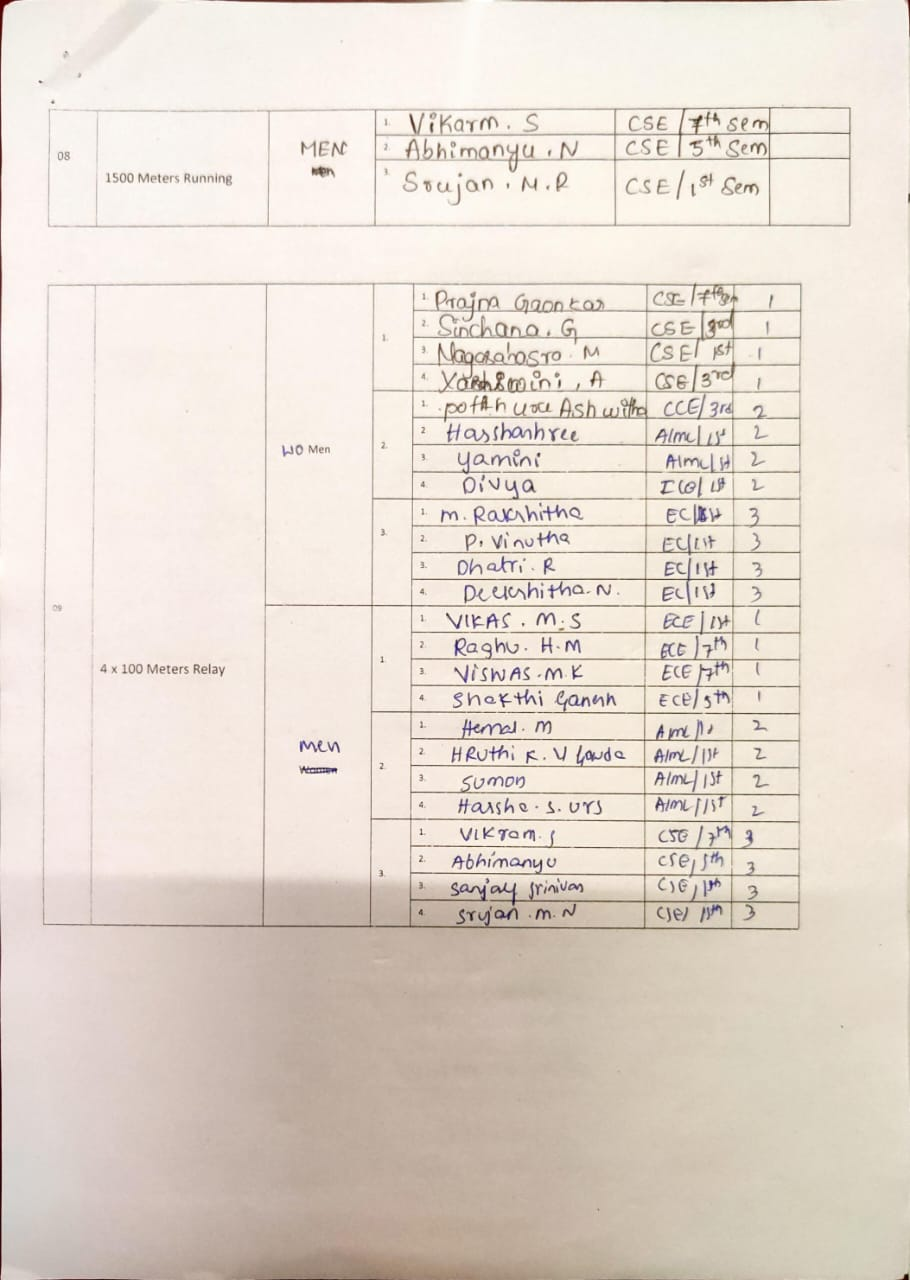 08 1500 Meters Running MEN
1. Vikarm. S CSE / 7th Sem
2. Abhimanyu. N CSE / 5th Sem
3. Srujan. M. R CSE / 1st Sem
09 4 x 100 Meters Relay
WO Men
1.
1. Prajna Gaonkar CSE / 7th 1
2. Sinchana. G CSE / 3rd 1
3. M CSE / 1st 1
4. , A CSE / 3rd 1
2.
1. Ashwitha CCE / 3rd 2
2. Harshashree AIML / 1st 2
3. yamini AIML / 1st 2
4. Divya / 1st 2
3.
1. M. Rakshitha EC / 3
2. P. Vinutha EC / 1st 3
3. Dhatri. R EC / 1st 3
4. Deekshitha. N. EC / 1st 3
Men
Women
1.
1. VIKAS. M. S ECE / 1st 1
2. Raghu. H. M ECE / 7th 1
3. VISWAS. M. K ECE / 7th 1
4. Shakthi Ganesh ECE / 5th 1
2.
1. M AIML / 2
2. HRuthi K. V Gowda AIML / 1st 2
3. Suman AIML / 1st 2
4. Harsha. S. URS AIML / 1st 2
3.
1. Vikram. S CSE / 7th 3
2. Abhimanyu CSE, 5th 3
3. Sanjay Srinivas CSE, 3
4. Srujan. M. N CSE / 3